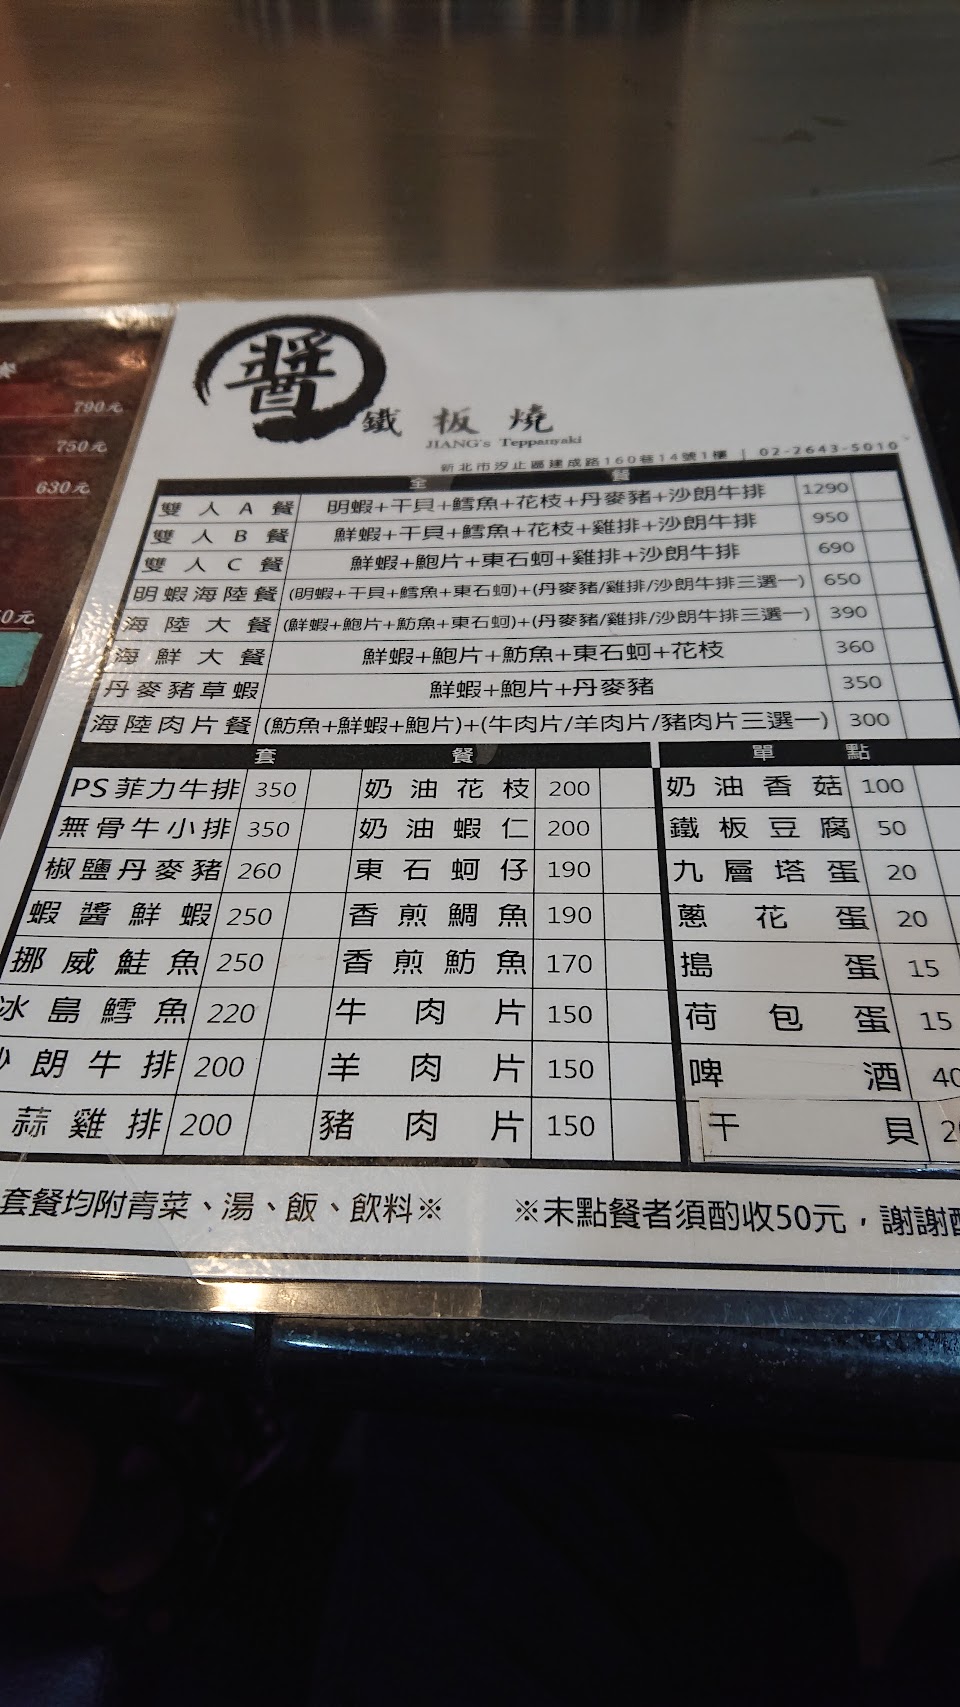 醬
鐵板燒
JIANG's Teppanyaki
新北市汐止區建成路160巷14號1樓 | 02-2643-5010
790元
750元
630元
0元
全餐
雙人A餐 明蝦+干貝+鱈魚+花枝+丹麥豬+沙朗牛排 1290
雙人B餐 鮮蝦+干貝+鱈魚+花枝+雞排+沙朗牛排 950
雙人C餐 鮮蝦+鮑片+東石蚵+雞排+沙朗牛排 690
明蝦海陸餐 (明蝦+干貝+鱈魚+東石蚵)+(丹麥豬/雞排/沙朗牛排三選一) 650
海陸大餐 (鮮蝦+鮑片+魴魚+東石蚵)+(丹麥豬/雞排/沙朗牛排三選一) 390
海鮮大餐 鮮蝦+鮑片+魴魚+東石蚵+花枝 360
丹麥豬草蝦 鮮蝦+鮑片+丹麥豬 350
海陸肉片餐 (魴魚+鮮蝦+鮑片)+(牛肉片/羊肉片/豬肉片三選一) 300
套餐 單點
PS菲力牛排 350 奶油花枝 200 奶油香菇 100
無骨牛小排 350 奶油蝦仁 200 鐵板豆腐 50
椒鹽丹麥豬 260 東石蚵仔 190 九層塔蛋 20
蝦醬鮮蝦 250 香煎鯛魚 190 蔥花蛋 20
挪威鮭魚 250 香煎魴魚 170 搗蛋 15
冰島鱈魚 220 牛肉片 150 荷包蛋 15
沙朗牛排 200 羊肉片 150 啤酒 40
蒜雞排 200 豬肉片 150 干貝 2
套餐均附青菜、湯、飯、飲料※ ※未點餐者須酌收50元，謝謝